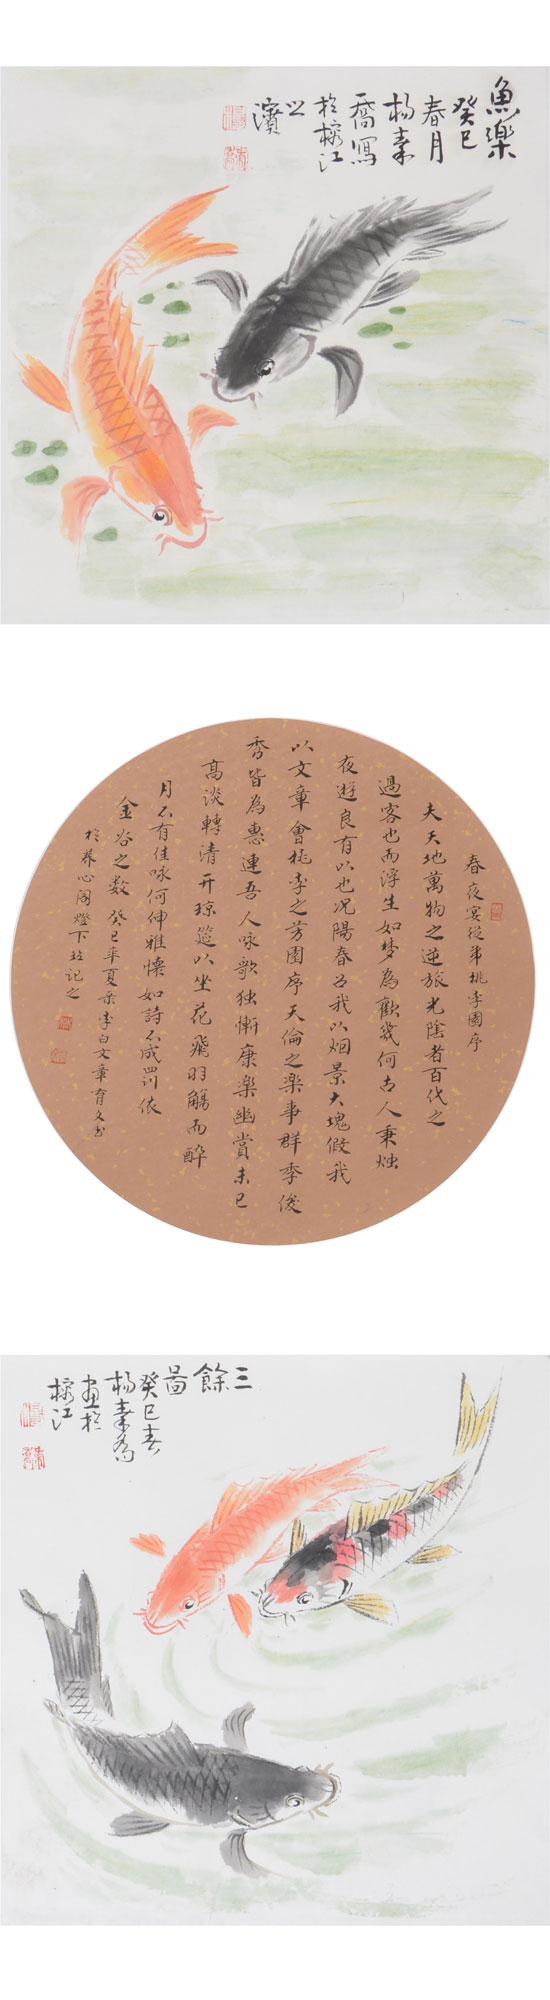 魚樂
癸巳
春月
杨素
喬寫
於榕江
之
濱
春夜宴從弟桃李園序
夫天地萬物之逆旅光陰者百代之
過客也而浮生如梦為歡幾何古人秉烛
夜遊良有以也况陽春召我以烟景大塊假我
以文章會桃李之芳園序天倫之楽事群季俊
秀皆為惠連吾人咏歌独慚康楽幽賞未已
高淡轉清开琼筵以坐花飛羽觴而醉
月不有佳咏何伸雅懷如詩不成罰依
金谷之数 癸巳年夏录李白文章育文书
於养心阁燈下 记之
三餘
圖
癸巳春
杨素喬
画於
榕江